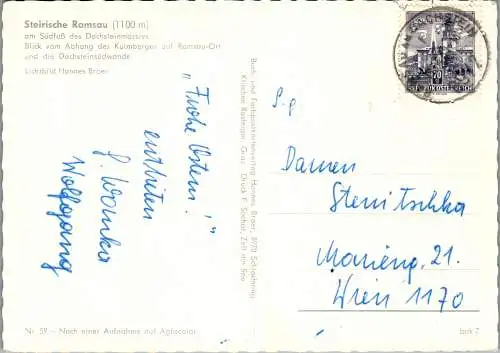 Steirische Ramsau (1100 m)
am Südfuß des Dachsteinmassivs
Blick vom Abhang des Kulmberges auf Ramsau-Ort
und die Dachsteinsüdwände
Lichtbild Hannes Broer
„Frohe Ostern!"
entbieten
Wolfgang
Buch- und Fachpostkartenverlag Hannes Broer, 8970 Schladming
Klischee Reisinger, Graz · Druck F. Sochor, Zell am See
S.g
Damen
Stenitschka
Marieng. 21.
Wien 1170
70
REPUBLIK ÖSTERREICH
Nr. 59 – Nach einer Aufnahme auf Agfacolor